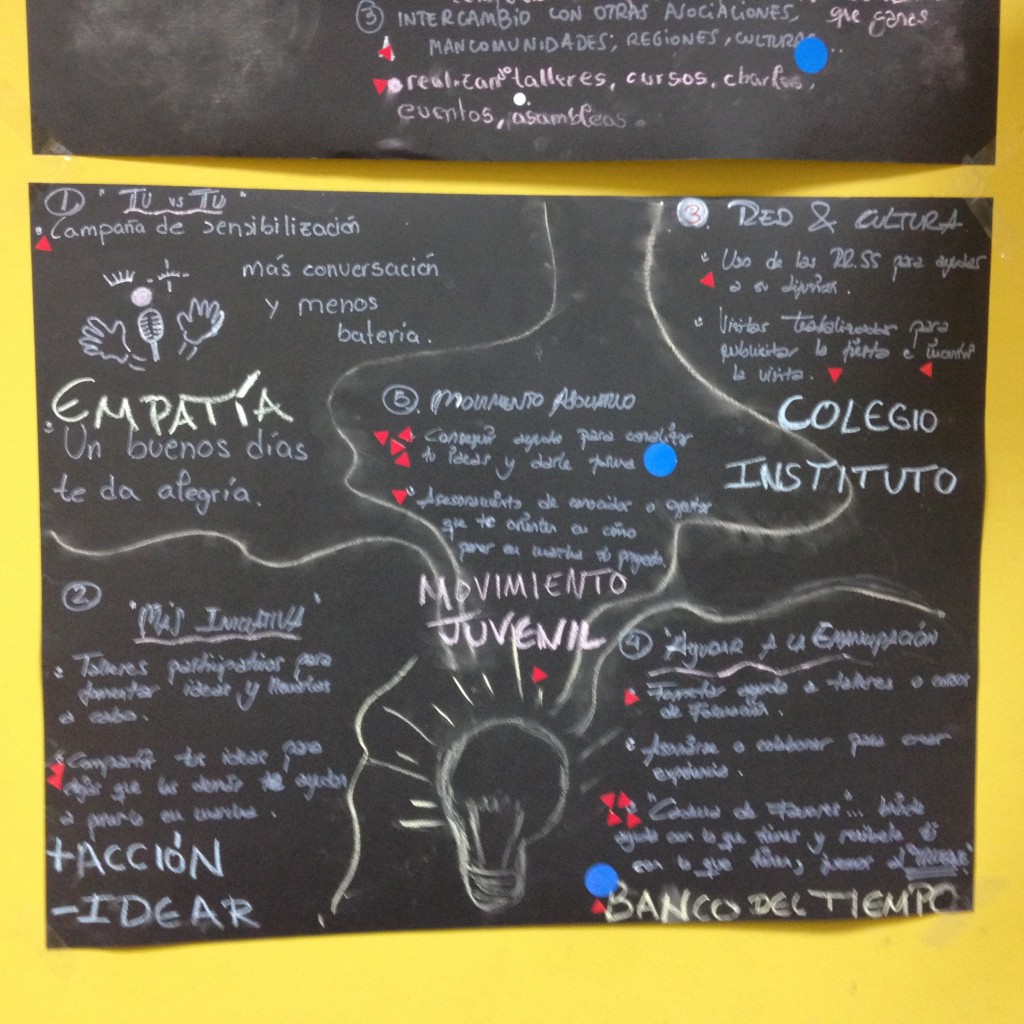 ③ INTERCAMBIO CON OTRAS ASOCIACIONES, que ganes
MANCOMUNIDADES, REGIONES, CULTURAS...
realizando talleres, cursos, charlas,
eventos, asambleas.
① "TU vs TU"
Campaña de sensibilización
más conversación
y menos
batería.
EMPATÍA
Un buenos días
te da alegría.
②
"MÁS INICIATIVA"
Talleres participativos para
fomentar ideas y llevarlas
a cabo.
Compartir tus ideas para
dejar que los demás te ayuden
a ponerlo en marcha.
+ACCIÓN
-IDEAR
⑤ MOVIMIENTO
Conseguir ayuda para
ti ideas y darle forma
Asesoramiento de
que te orienten en cómo
poner en marcha tu proyecto
MOVIMIENTO
JUVENIL
③ RED & CULTURA
Uso de las RR.SS para ayudar
a su difusión.
Visitas para
publicitar la
la visita.
COLEGIO
INSTITUTO
④ "AYUDAR A LA EMANCIPACIÓN
Fomentar ayuda a talleres o cursos
de Formación.
Asociarse o colaborar para crear
experiencia.
"Cadena de Favores"...
ayuda con lo que tienes y
con lo que
BANCO DEL TIEMPO